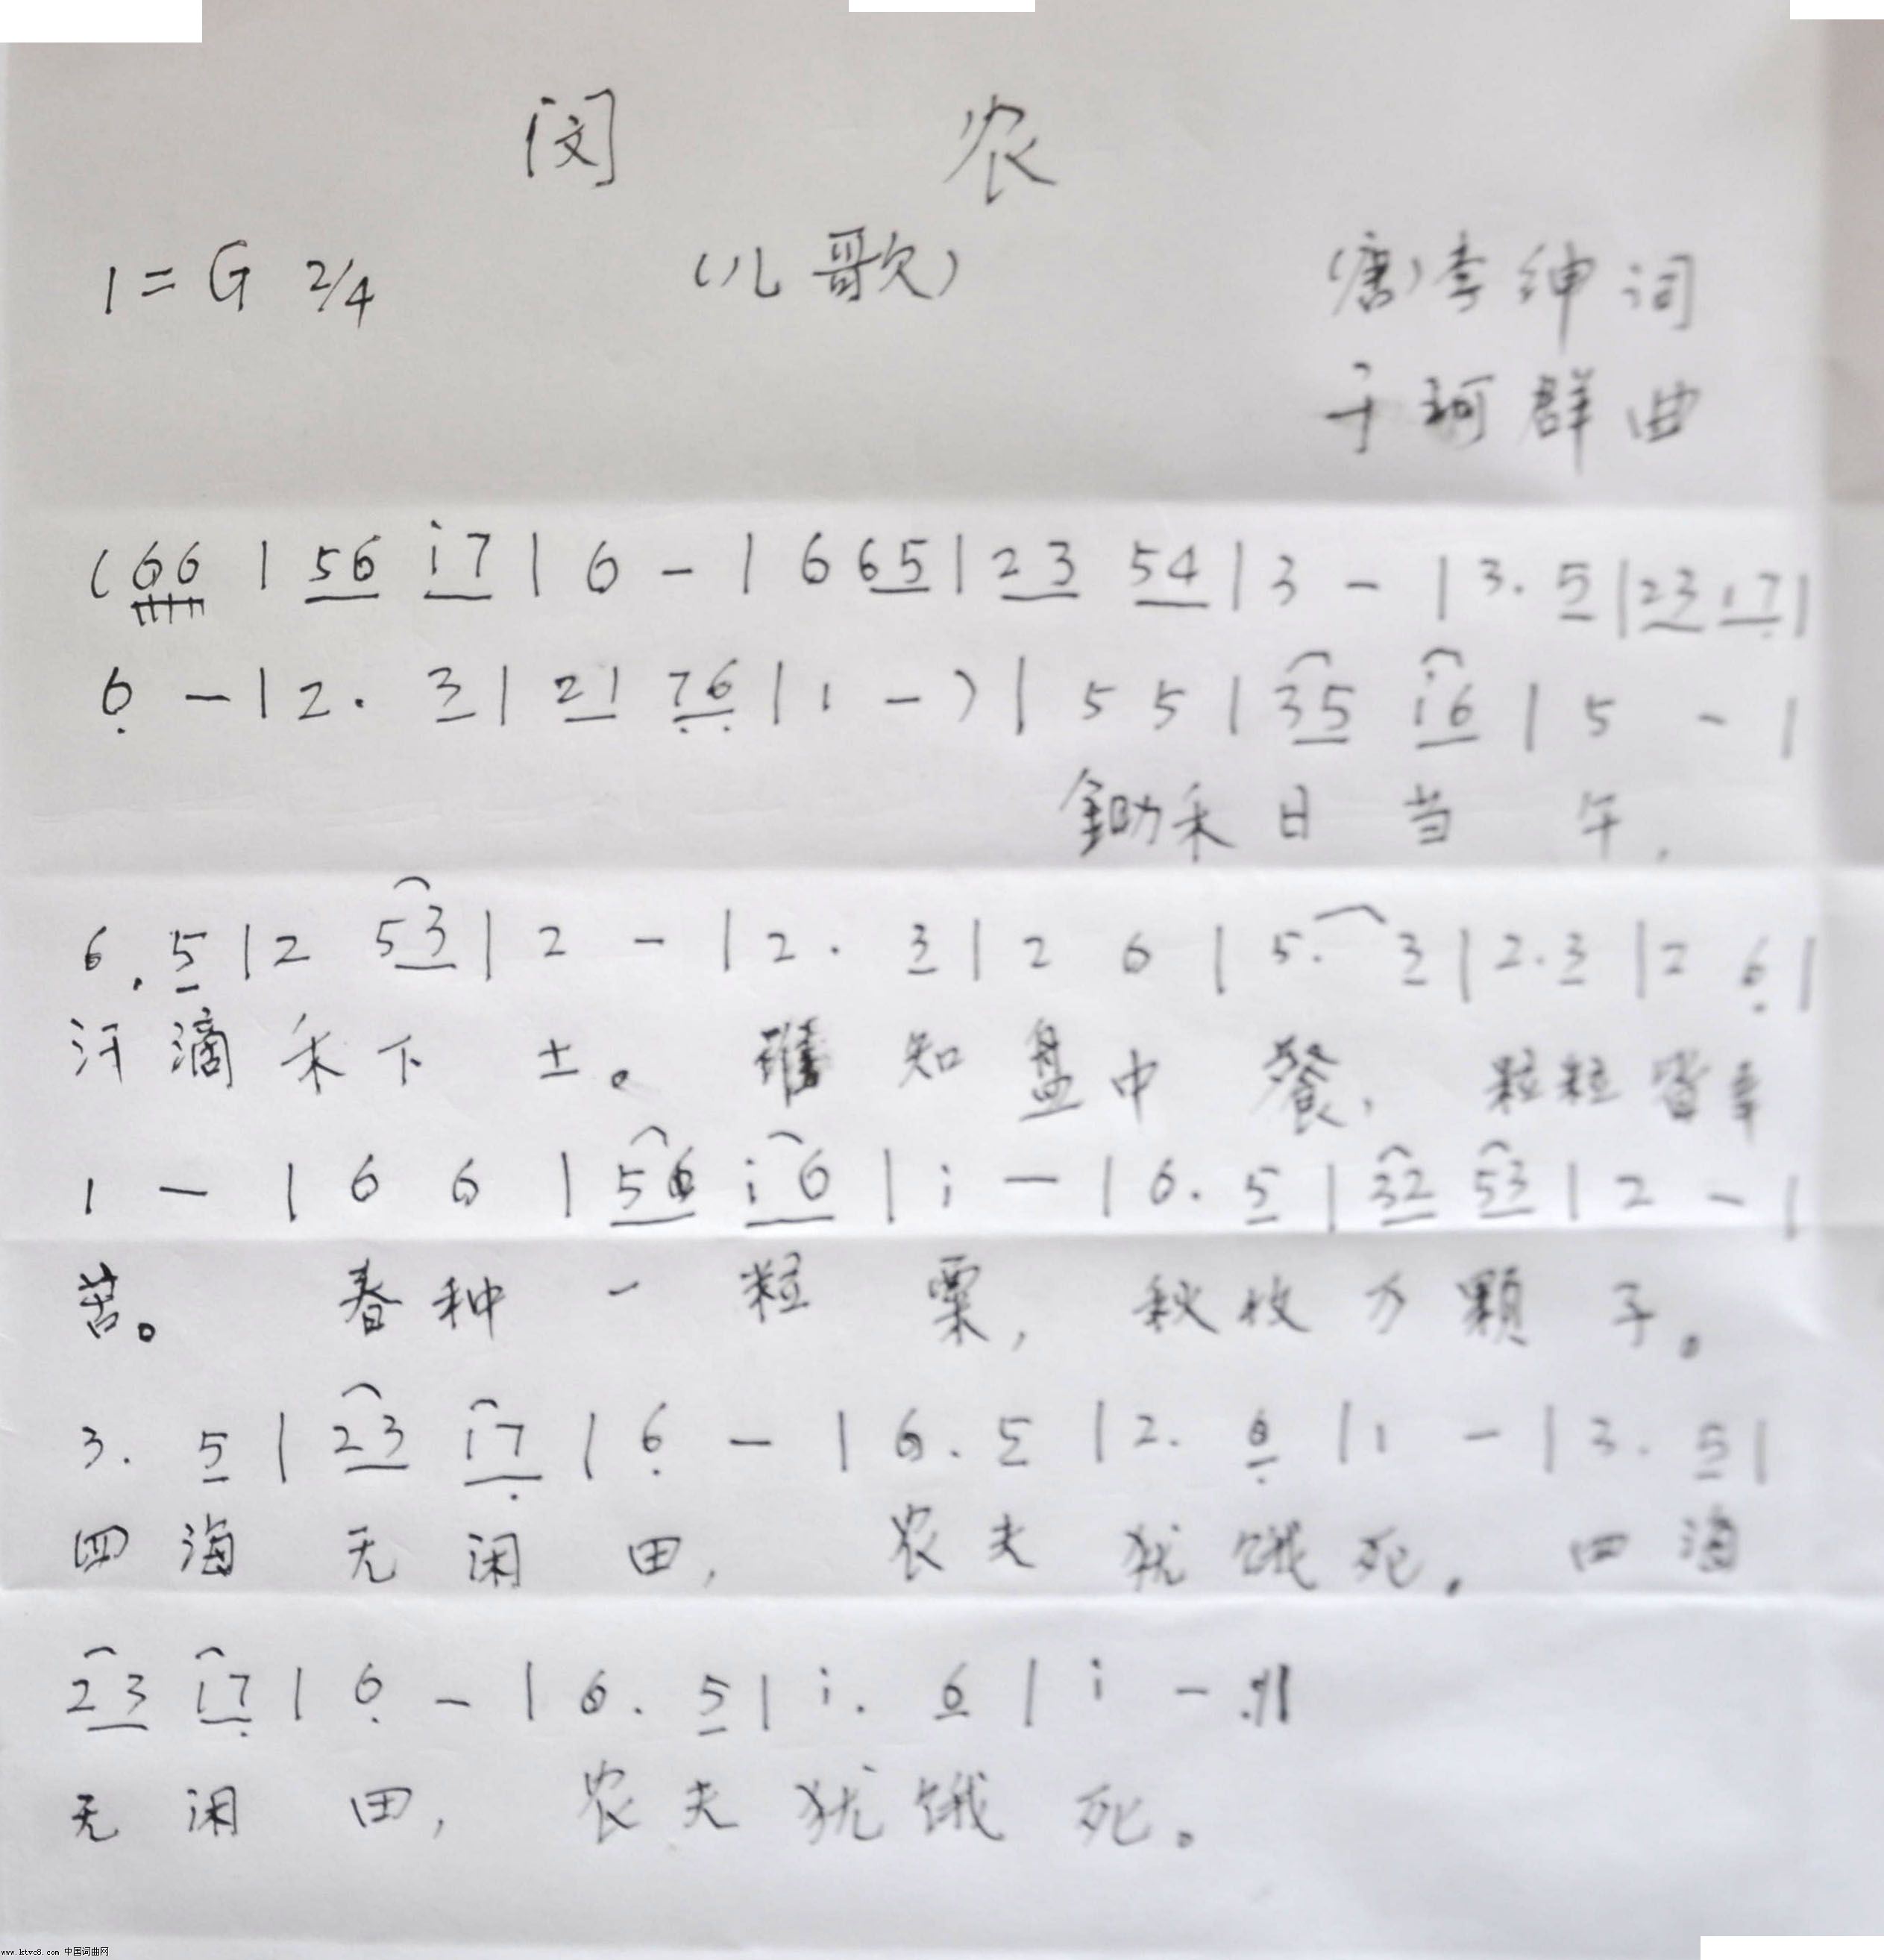 闵 农
(儿歌)
1=G 2/4 (唐)李绅词
于珂群曲
(66 | 56 i7 | 6 - | 6 65 | 23 54 | 3 - | 3. 5 | 23 17 |
6 - | 2. 3 | 21 76 | 1 - ) | 5 5 | 35 i6 | 5 - |
鋤禾日当午,
6. 5 | 2 53 | 2 - | 2. 3 | 2 6 | 5. 3 | 2. 3 | 2 6 |
汗滴禾下土。谁知盘中餐,粒粒皆辛
1 - | 6 6 | 56 i6 | i - | 6. 5 | 32 53 | 2 - |
苦。春种一粒粟,秋收万颗子。
3. 5 | 23 17 | 6 - | 6. 5 | 2. 6 | 1 - | 3. 5 |
四海无闲田,农夫犹饿死。四海
23 17 | 6 - | 6. 5 | i. 6 | i - :||
无闲田,农夫犹饿死。
www.ktvc8.com 中国词曲网